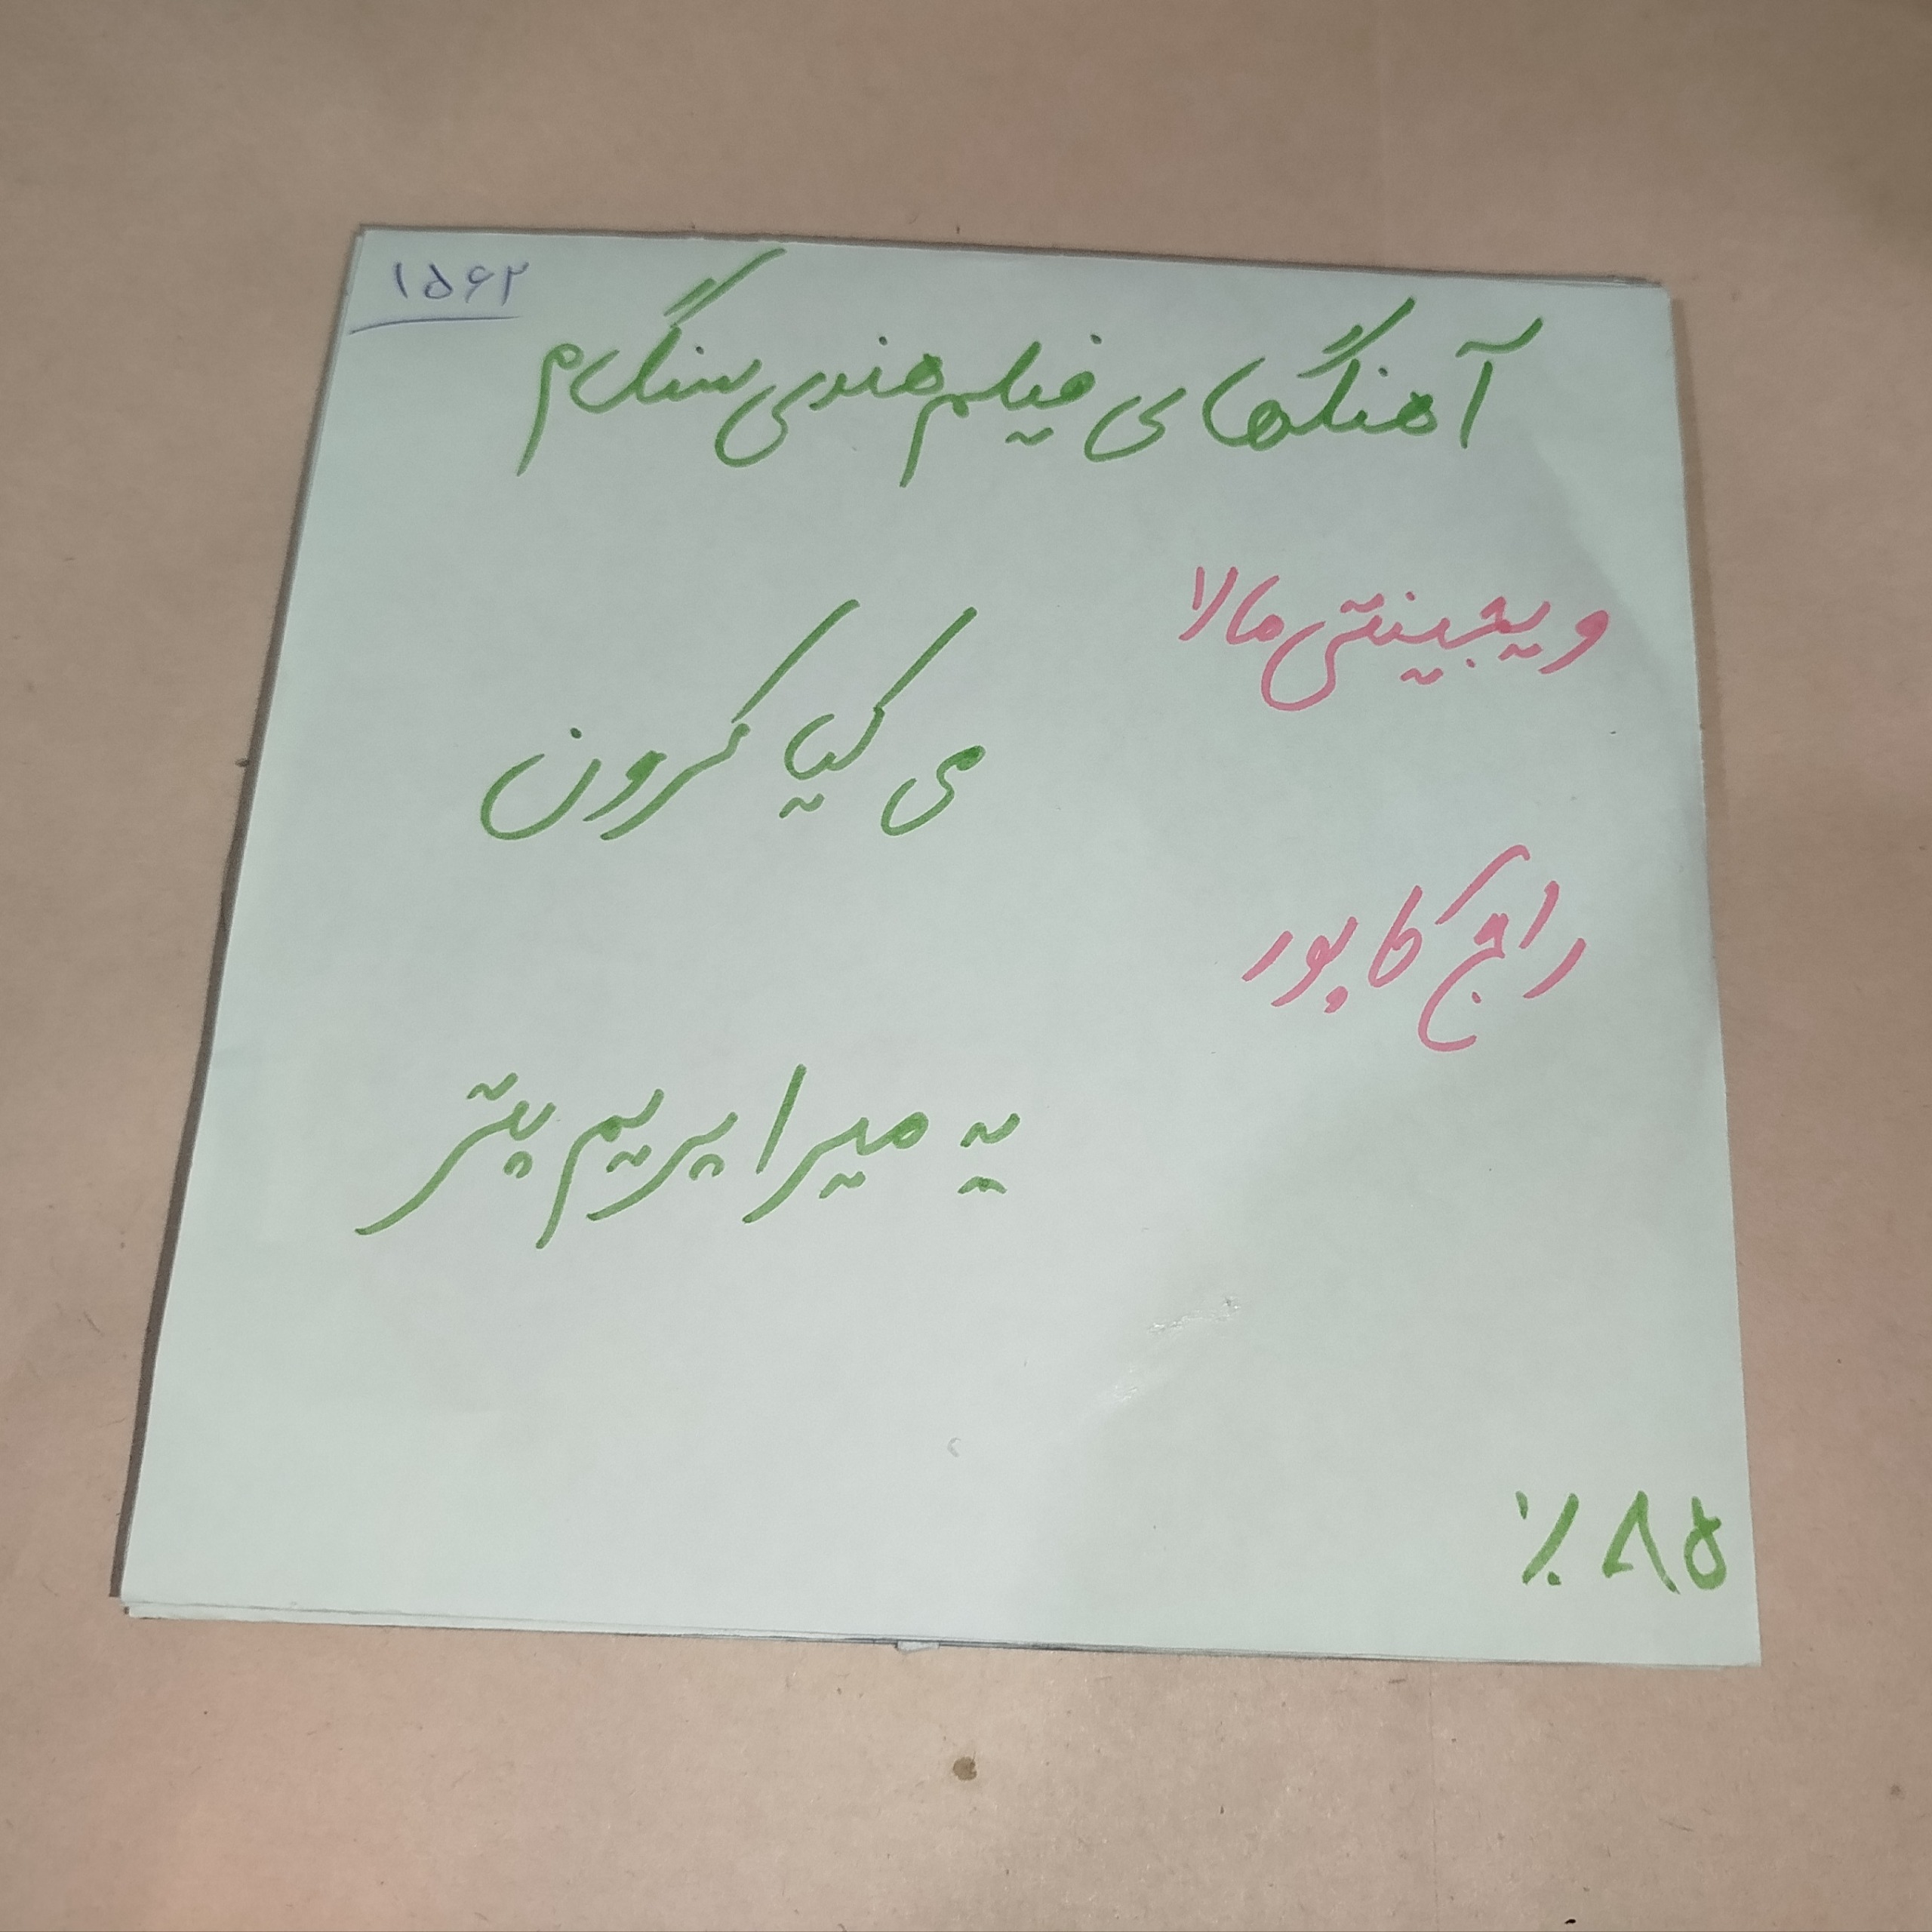 ۱۵۶۲
آهنگهای فیلم هندی سنگم
ویجینتی مالا
می کیا کرون
راج کاپور
یه میرا پریم پتر
۸۵٪